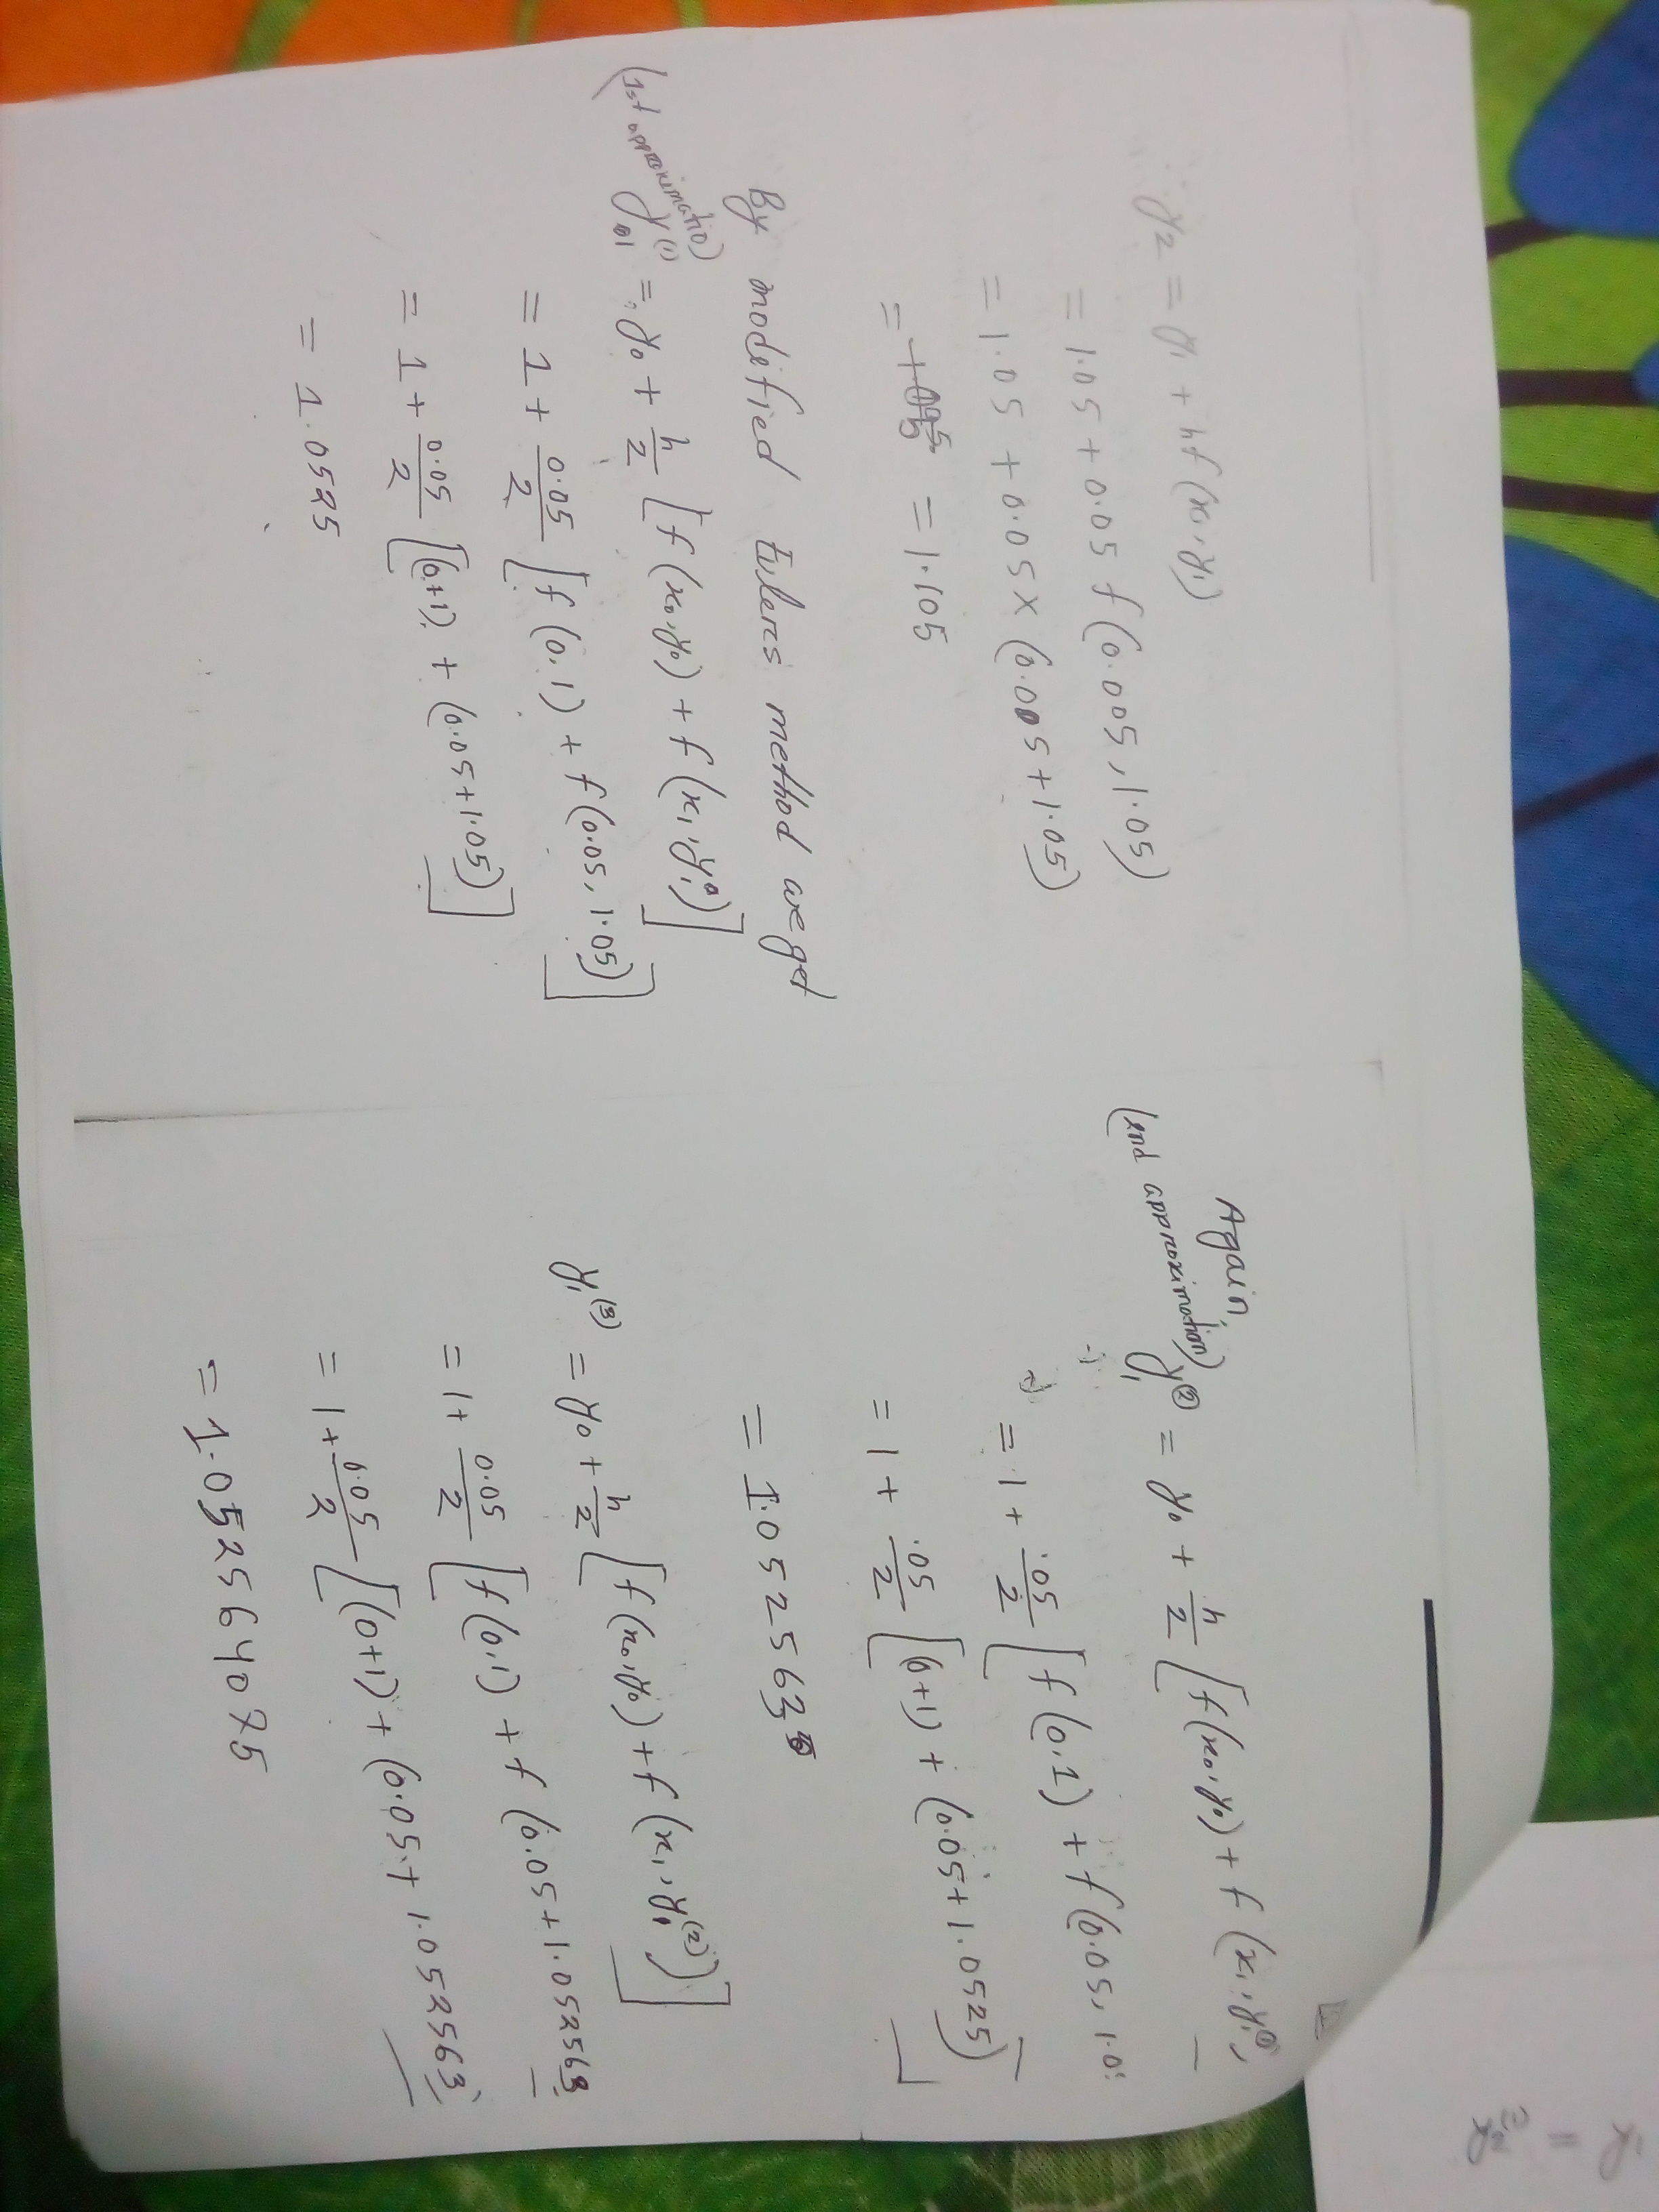 y₂ = y₁ + hf (x₁, y₁)
= 1.05 + 0.05 f (0.005, 1.05)
= 1.05 + 0.05 × (0.005 + 1.05)
= = 1.105
By modified Eulers method we get
(1st approximatio)
y₁⁽¹⁾ = y₀ + h/2 [f (x₀, y₀) + f (x₁, y₁⁰)]
= 1 + 0.05/2 [f (0, 1) + f (0.05, 1.05)]
= 1 + 0.05/2 [(0+1) + (0.05+1.05)]
= 1.0525
Again,
(2nd approximation) y₁② = y₀ + h/2 [f (x₀, y₀) + f (x₁, y₁①)
= 1 + .05/2 [f (0, 1) + f (0.05, 1.0
= 1 + .05/2 [(0+1) + (0.05 + 1.0525)]
= 1.052563
y₁⁽³⁾ = y₀ + h/2 [f (x₀, y₀) + f (x₁, y₁⁽²⁾)]
= 1 + 0.05/2 [f (0, 1) + f (0.05 + 1.052563
= 1 + 0.05/2 [(0+1) + (0.05 + 1.052563)
= 1.052564075